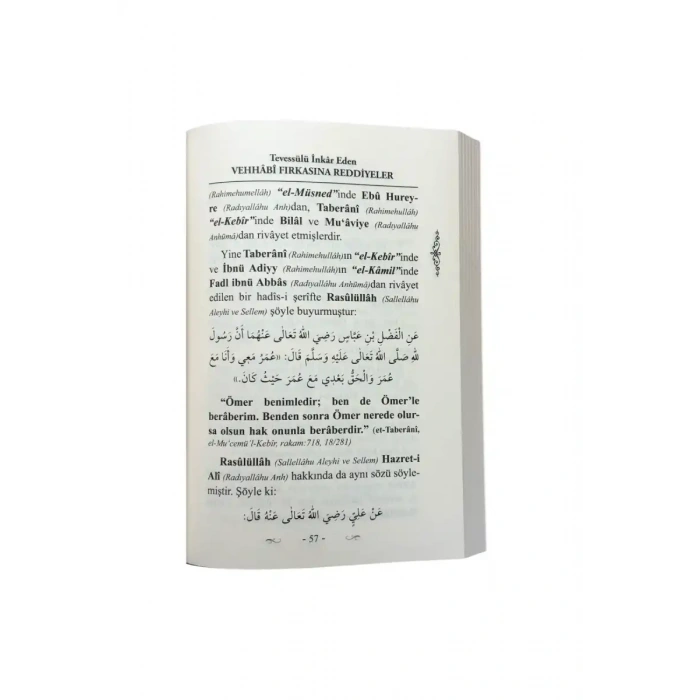 Tevessülü İnkâr Eden
VEHHÂBÎ FIRKASINA REDDİYELER
(Rahimehumellâh) “el-Müsned”inde Ebû Hurey-
re (Radıyallâhu Anh)dan, Taberânî (Rahimehullâh)
“el-Kebîr”inde Bilâl ve Mu‘âviye (Radıyallâhu
Anhümâ)dan rivâyet etmişlerdir.
Yine Taberânî (Rahimehullâh)ın “el-Kebîr”inde
ve İbnü Adiyy (Rahimehullâh)ın “el-Kâmil”inde
Fadl ibnü Abbâs (Radıyallâhu Anhümâ)dan rivâyet
edilen bir hadîs-i şerîfte Rasûlüllâh (Sallellâhu
Aleyhi ve Sellem) şöyle buyurmuştur:
عَنِ الْفَضْلِ بْنِ عَبَّاسٍ رَضِيَ اللهُ تَعَالَى عَنْهُمَا أَنَّ رَسُولَ
اللهِ صَلَّى اللهُ تَعَالَى عَلَيْهِ وَسَلَّمَ قَالَ: «عُمَرُ مَعِي وَأَنَا مَعَ
عُمَرَ وَالْحَقُّ بَعْدِي مَعَ عُمَرَ حَيْثُ كَانَ.»
“Ömer benimledir; ben de Ömer’le
berâberim. Benden sonra Ömer nerede olur-
sa olsun hak onunla berâberdir.” (et-Taberânî,
el-Mu‘cemü’l-Kebîr, rakam:718, 18/281)
Rasûlüllâh (Sallellâhu Aleyhi ve Sellem) Hazret-i
Alî (Radıyallâhu Anh) hakkında da aynı sözü söyle-
miştir. Şöyle ki:
عَنْ عَلِيٍّ رَضِيَ اللهُ تَعَالَى عَنْهُ قَالَ:
- 57 -